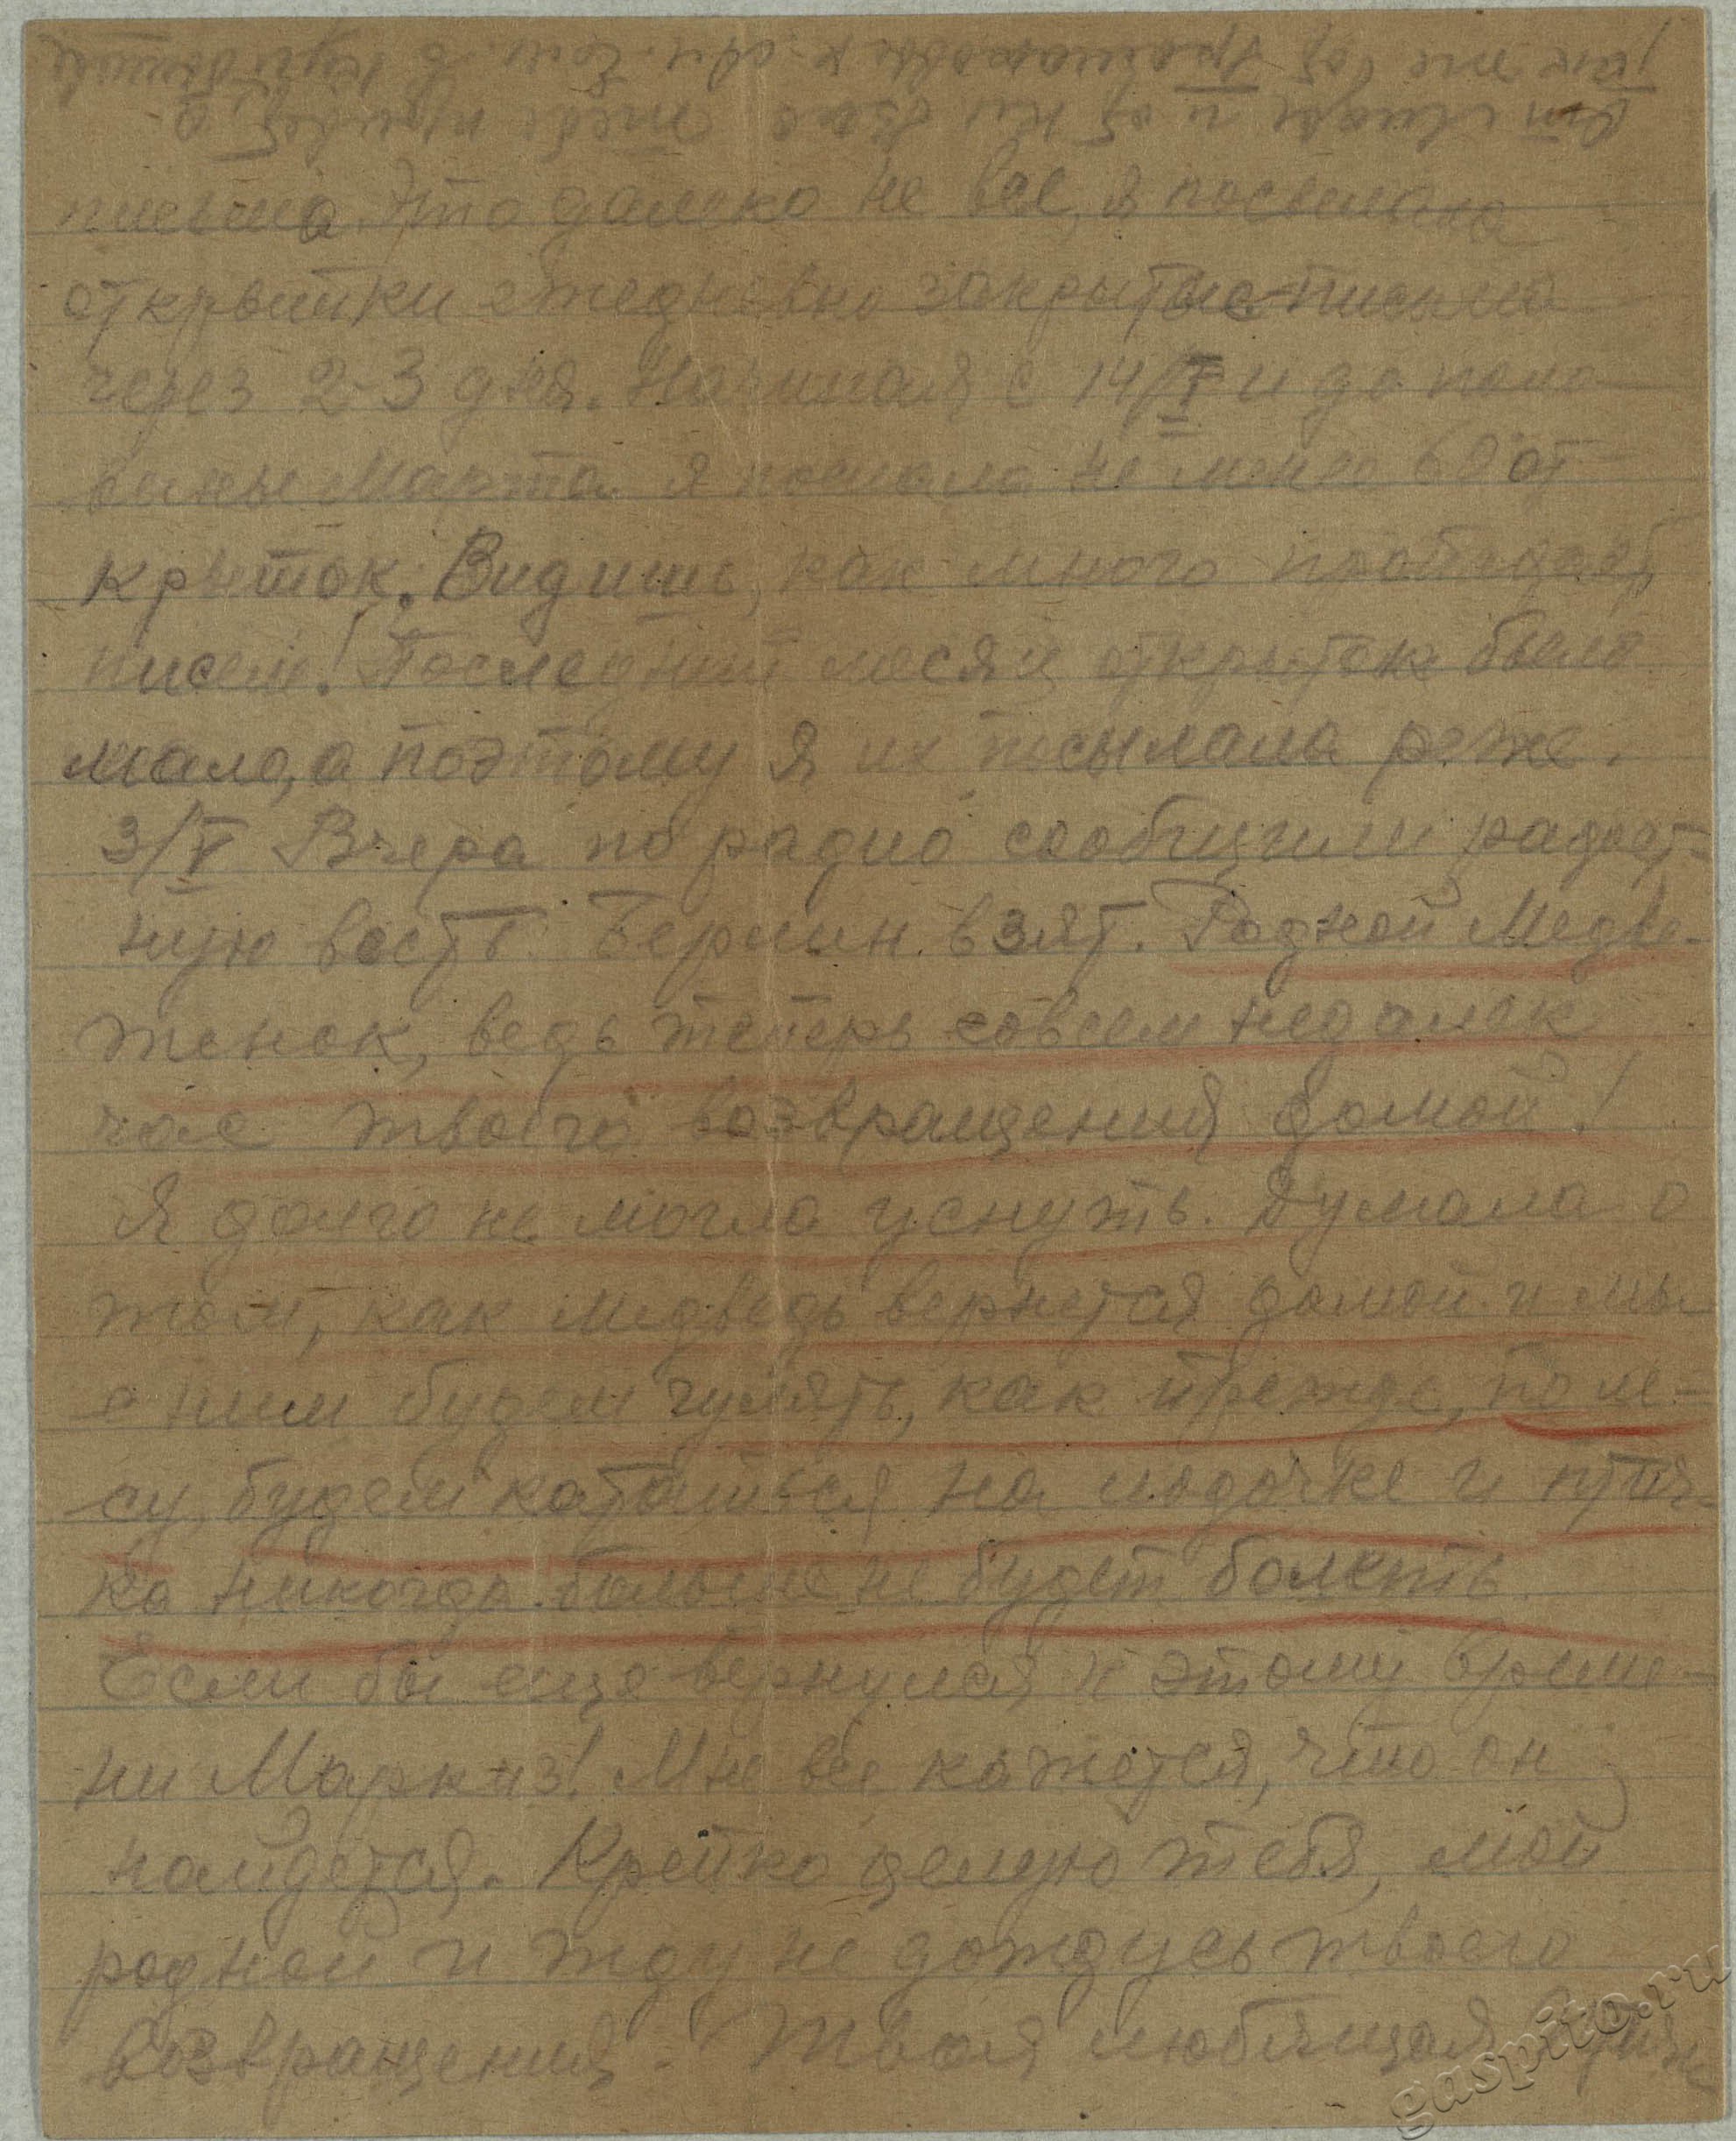 письма. Это далеко не все, я посылала
открытки ежедневно закрытые письма
через 2-3 дня. Начиная с 14/I и до поло-
вины Марта я послала не менее 60 от-
крыток. Видишь, как много пропадает
писем! Последний месяц открыток было
мало, а поэтому я их посылала реже.
3/V Вчера по радио сообщили радост-
ную весть. Берлин взят. Родной Медве-
женок, ведь теперь совсем недалек
час твоего возвращения домой!
Я долго не могла уснуть. Думала о
том, как медведь вернется домой и мы
с ним будем гулять, как прежде, по ле-
су, будем кататься на лодочке и птич-
ка никогда больше не будет болеть.
Если бы еще вернулся к этому време-
ни Маркиз! Мне все кажется, что он
найдется. Крепко целую тебя, мой
родной и жду не дождусь твоего
возвращения. Твоя любящая
gaspito.ru